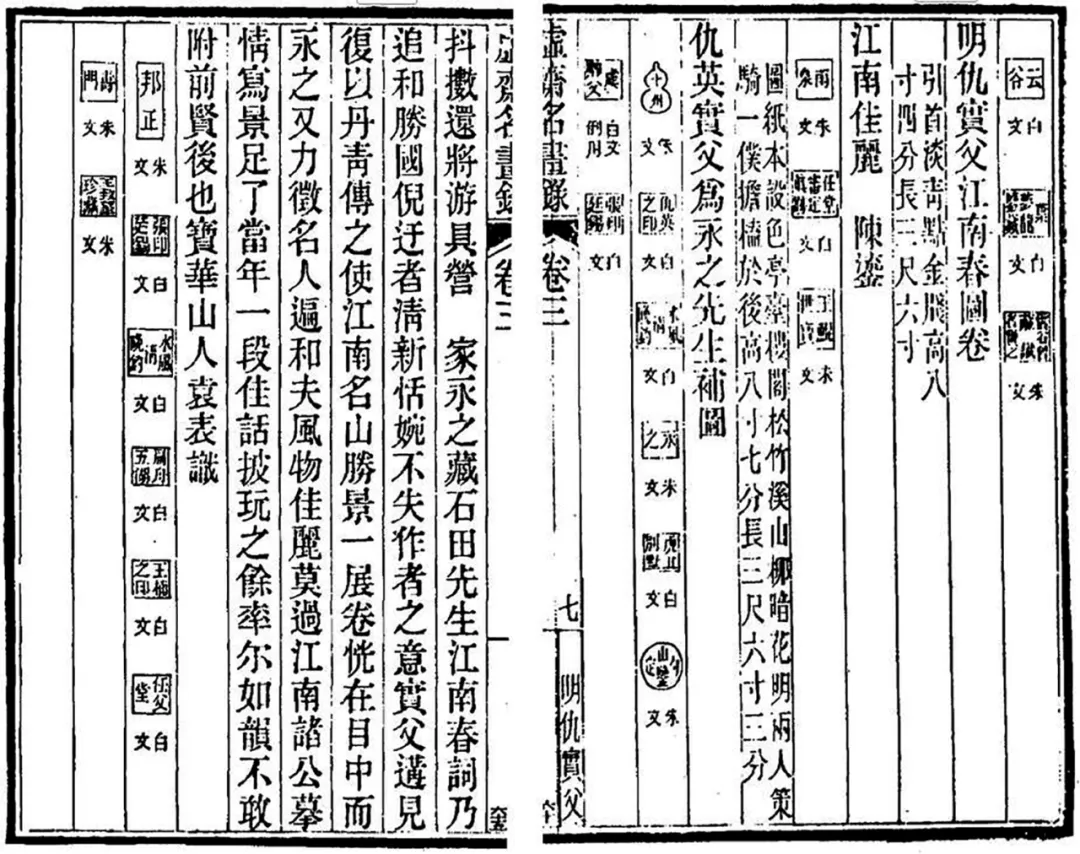 云谷 白文 白文 朱文
明仇實父江南春圖卷
引首淡青點金牋高八
寸四分長三尺六寸
江南佳麗 陳鎏
雨泉 朱文 白文 朱文
圖紙本設色亭臺樓閣松竹溪山柳暗花明兩人策
騎一僕擔榼於後高八寸七分長三尺六寸三分
仇英實父爲永之先生補圖
十州 朱文 仇英之印 白文 水風清 白文 永之 朱文 虎丘別墅 白文 朱文
白文例用 張印 白文
虛齋名畫錄 卷三 七 明仇實父
虛齋名畫錄 卷三
抖擻還將游具營 家永之藏石田先生江南春詞乃
追和勝國倪迂者清新恬婉不失作者之意實父遘見
復以丹青傳之使江南名山勝景一展卷恍在目中而
永之又力徵名人遍和夫風物佳麗莫過江南諸公摹
情寫景足了當年一段佳話披玩之餘率尔如韻不敢
附前賢後也寶華山人袁表識
邦正 朱文 張印廷錫 白文 水風清 白文 白文 王 之印 白文 任父堂 白文
壽門 朱文 珍藏 朱文